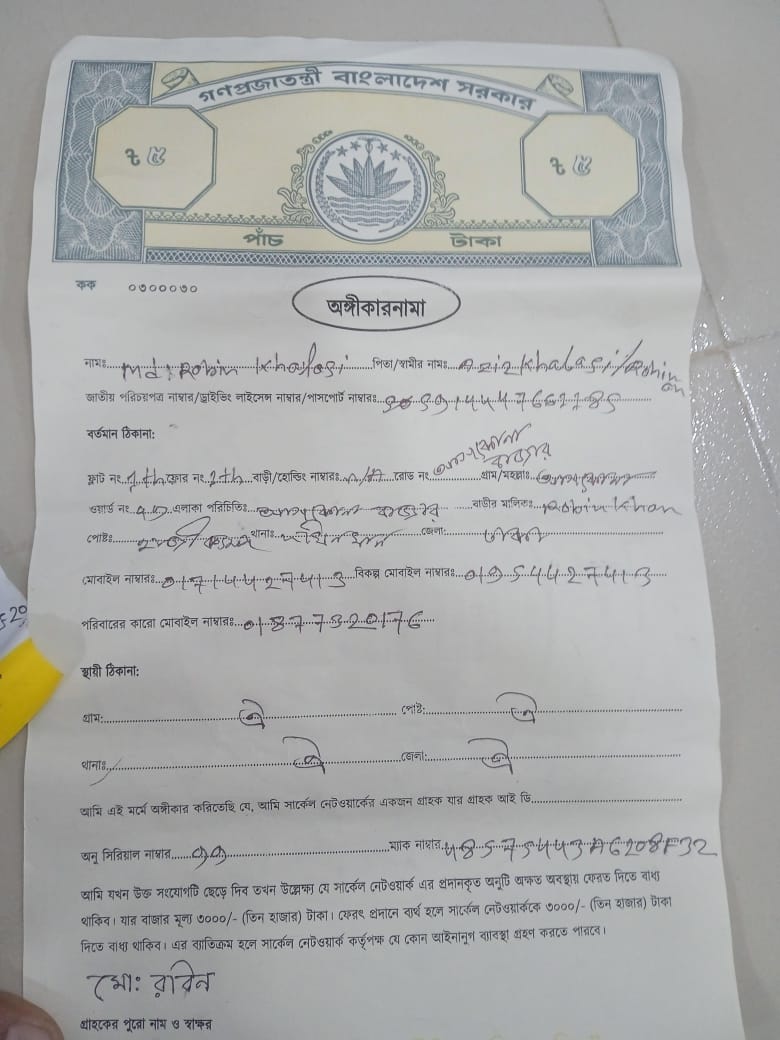 গণপ্রজাতন্ত্রী বাংলাদেশ সরকার
৳ ৫ ৳ ৫
পাঁচ টাকা
কক ০৩০০০৩০
অঙ্গীকারনামা
নামঃ Md: Robin Khalasi পিতা/স্বামীর নামঃ Aziz Khalasi/Robin
জাতীয় পরিচয়পত্র নাম্বার/ড্রাইভিং লাইসেন্স নাম্বার/পাসপোর্ট নাম্বারঃ
বর্তমান ঠিকানা:
ফ্লাট নং ফ্লোর নং 2th বাড়ী/হোল্ডিং নাম্বারঃ N/A রোড নং গ্রাম/মহল্লাঃ
ওয়ার্ড নং এলাকা পরিচিতিঃ বাড়ীর মালিকঃ Robin Khan
পোষ্টঃ থানাঃ দক্ষিনখান জেলাঃ ঢাকা
মোবাইল নাম্বারঃ 01714427413 বিকল্প মোবাইল নাম্বারঃ 01954427413
পরিবারের কারো মোবাইল নাম্বারঃ 01877320176
স্থায়ী ঠিকানা:
গ্রাম: ঐ পোষ্ট: ঐ
থানাঃ ঐ জেলা: ঐ
আমি এই মর্মে অঙ্গীকার করিতেছি যে, আমি সার্কেল নেটওয়ার্কের একজন গ্রাহক যার গ্রাহক আই ডি
অনু সিরিয়াল নাম্বার ম্যাক নাম্বার 48575443A6208F32
আমি যখন উক্ত সংযোগটি ছেড়ে দিব তখন উল্লেক্ষ্য যে সার্কেল নেটওয়ার্ক এর প্রদানকৃত অনুটি অক্ষত অবস্থায় ফেরত দিতে বাধ্য
থাকিব। যার বাজার মূল্য ৩০০০/- (তিন হাজার) টাকা। ফেরৎ প্রদানে ব্যর্থ হলে সার্কেল নেটওয়ার্ককে ৩০০০/- (তিন হাজার) টাকা
দিতে বাধ্য থাকিব। এর ব্যাতিক্রম হলে সার্কেল নেটওয়ার্ক কর্তৃপক্ষ যে কোন আইনানুগ ব্যাবস্থা গ্রহণ করতে পারবে।
মো: রবিন
গ্রাহকের পুরো নাম ও স্বাক্ষর